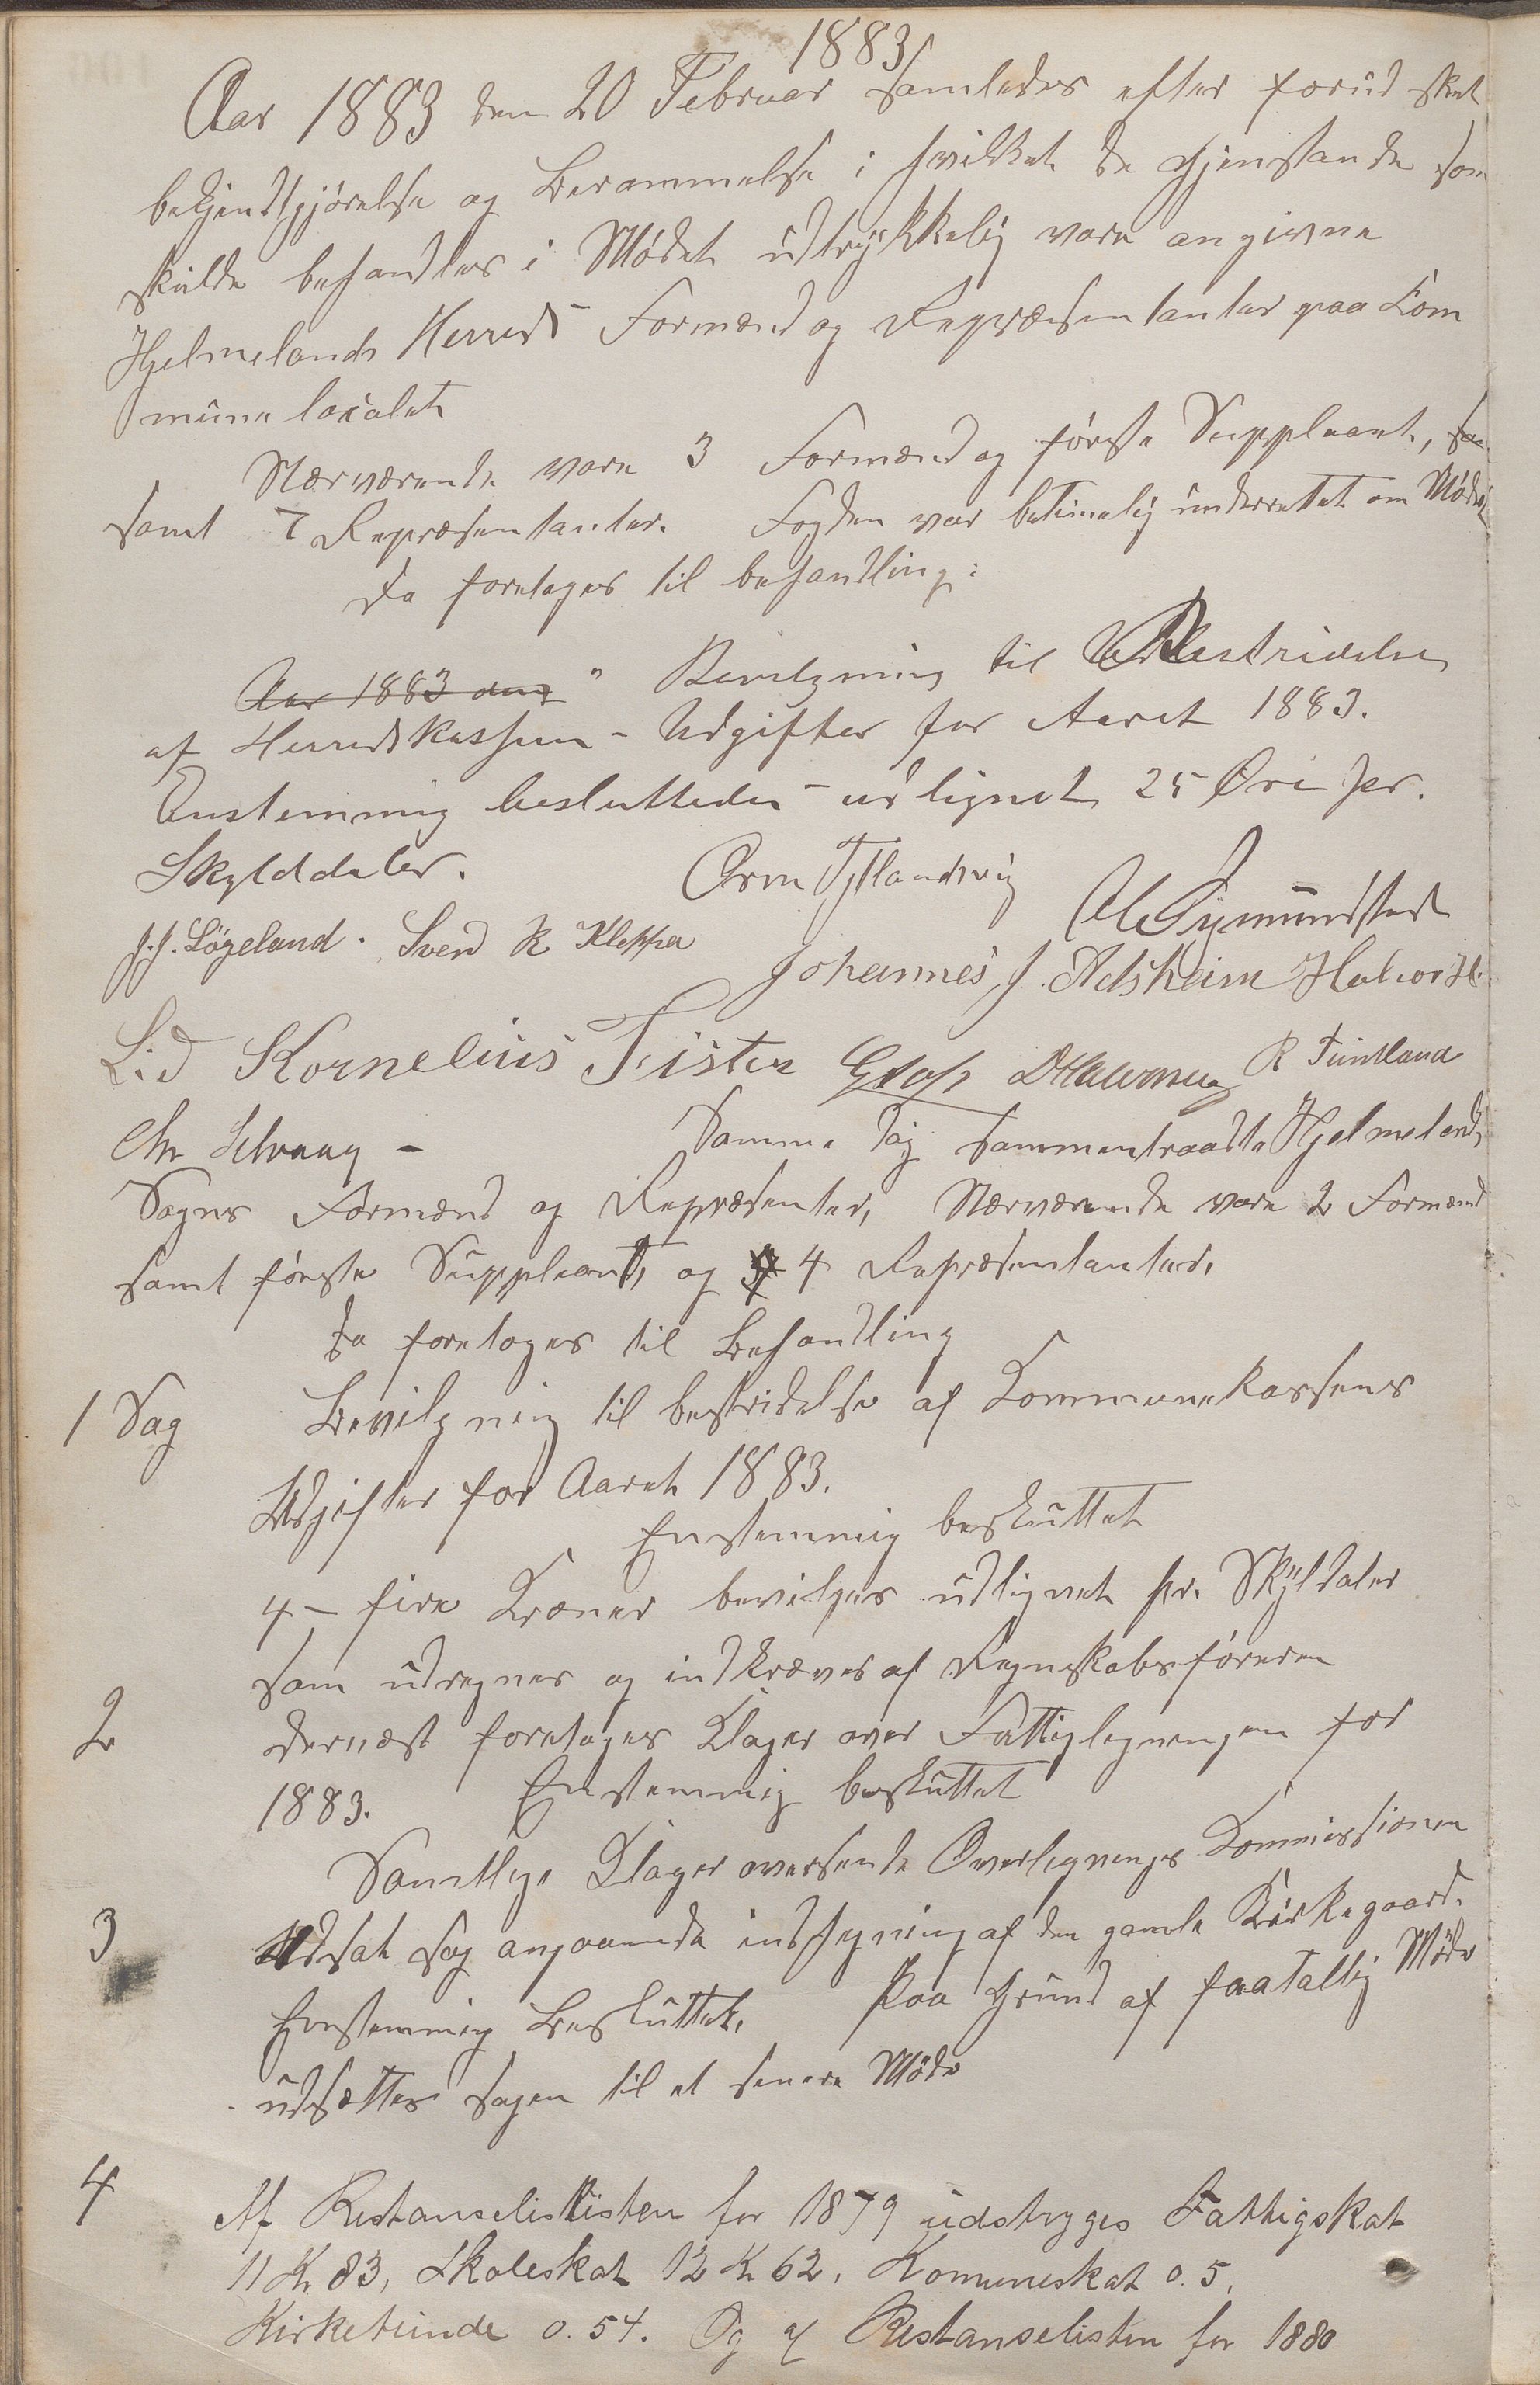 1883
Aar 1883 den 20 Februar samledes efter forud sket
bekjendtgjörelse og Berammelse i hvilket de Gjenstande som
skulde behandles i Mödet udtrykkelig vare angivne
Hjelmelands Herreds Formænd og Repræsentanter paa Kom
mune localet
Nærværende vare 3 Formænd og förste Suppleant,
samt 7 Repræsentanter. Fogden var betimelig underrettet om Mödet
Da foretoges til behandling:
Aar 1883 den " Bevilgning til Bestridelse
af Herredskassens Udgifter for Aaret 1883.
Enstemmig besluttedes udlignet 25 Öre pr.
Skylddaler.
Orm Fyllandsvig
J.J. Lögeland. Svend R Kleppa
Johannes J. Adsheim Halvor H.
Lid Kornelius Fister R Funtland
Chr Selvaag -
Samme Dag sammentraadte Hjelmelands
Sogns Formænd og Repræsenter, Nærværende vare 2 Formænd
samt förste Suppleant, og 4 Repræsentanter.
Da foretoges til Behandling
1 Sag Bevilgning til bestridelse af Kommunekassens
Udgifter for Aaret 1883.
Enstemmig besluttet
4 - fire Kroner bevilges udlignet pr. Skyldaler
som udregnes og indkræves af Regnskabsföreren
2 dernæst foretoges Klager over Fattiglegningen for
1883. Enstemmig besluttet
Samtlige Klager oversende Overlegnings Kommissionen
3 Udsat Sag angaaende indhegning af den gamle Kirkegaard.
Enstemmig Besluttet. Paa Grund af faatallig Möde
udsættes Sagen til et senere Möde
4 Af Restanselistlisten for 1879 udstryges Fattigskat
11 Kr 83, Skoleskat 12 Kr 62, Komuneskat 0.5,
Kirketiende 0.54. Og af Restanselisten for 1880